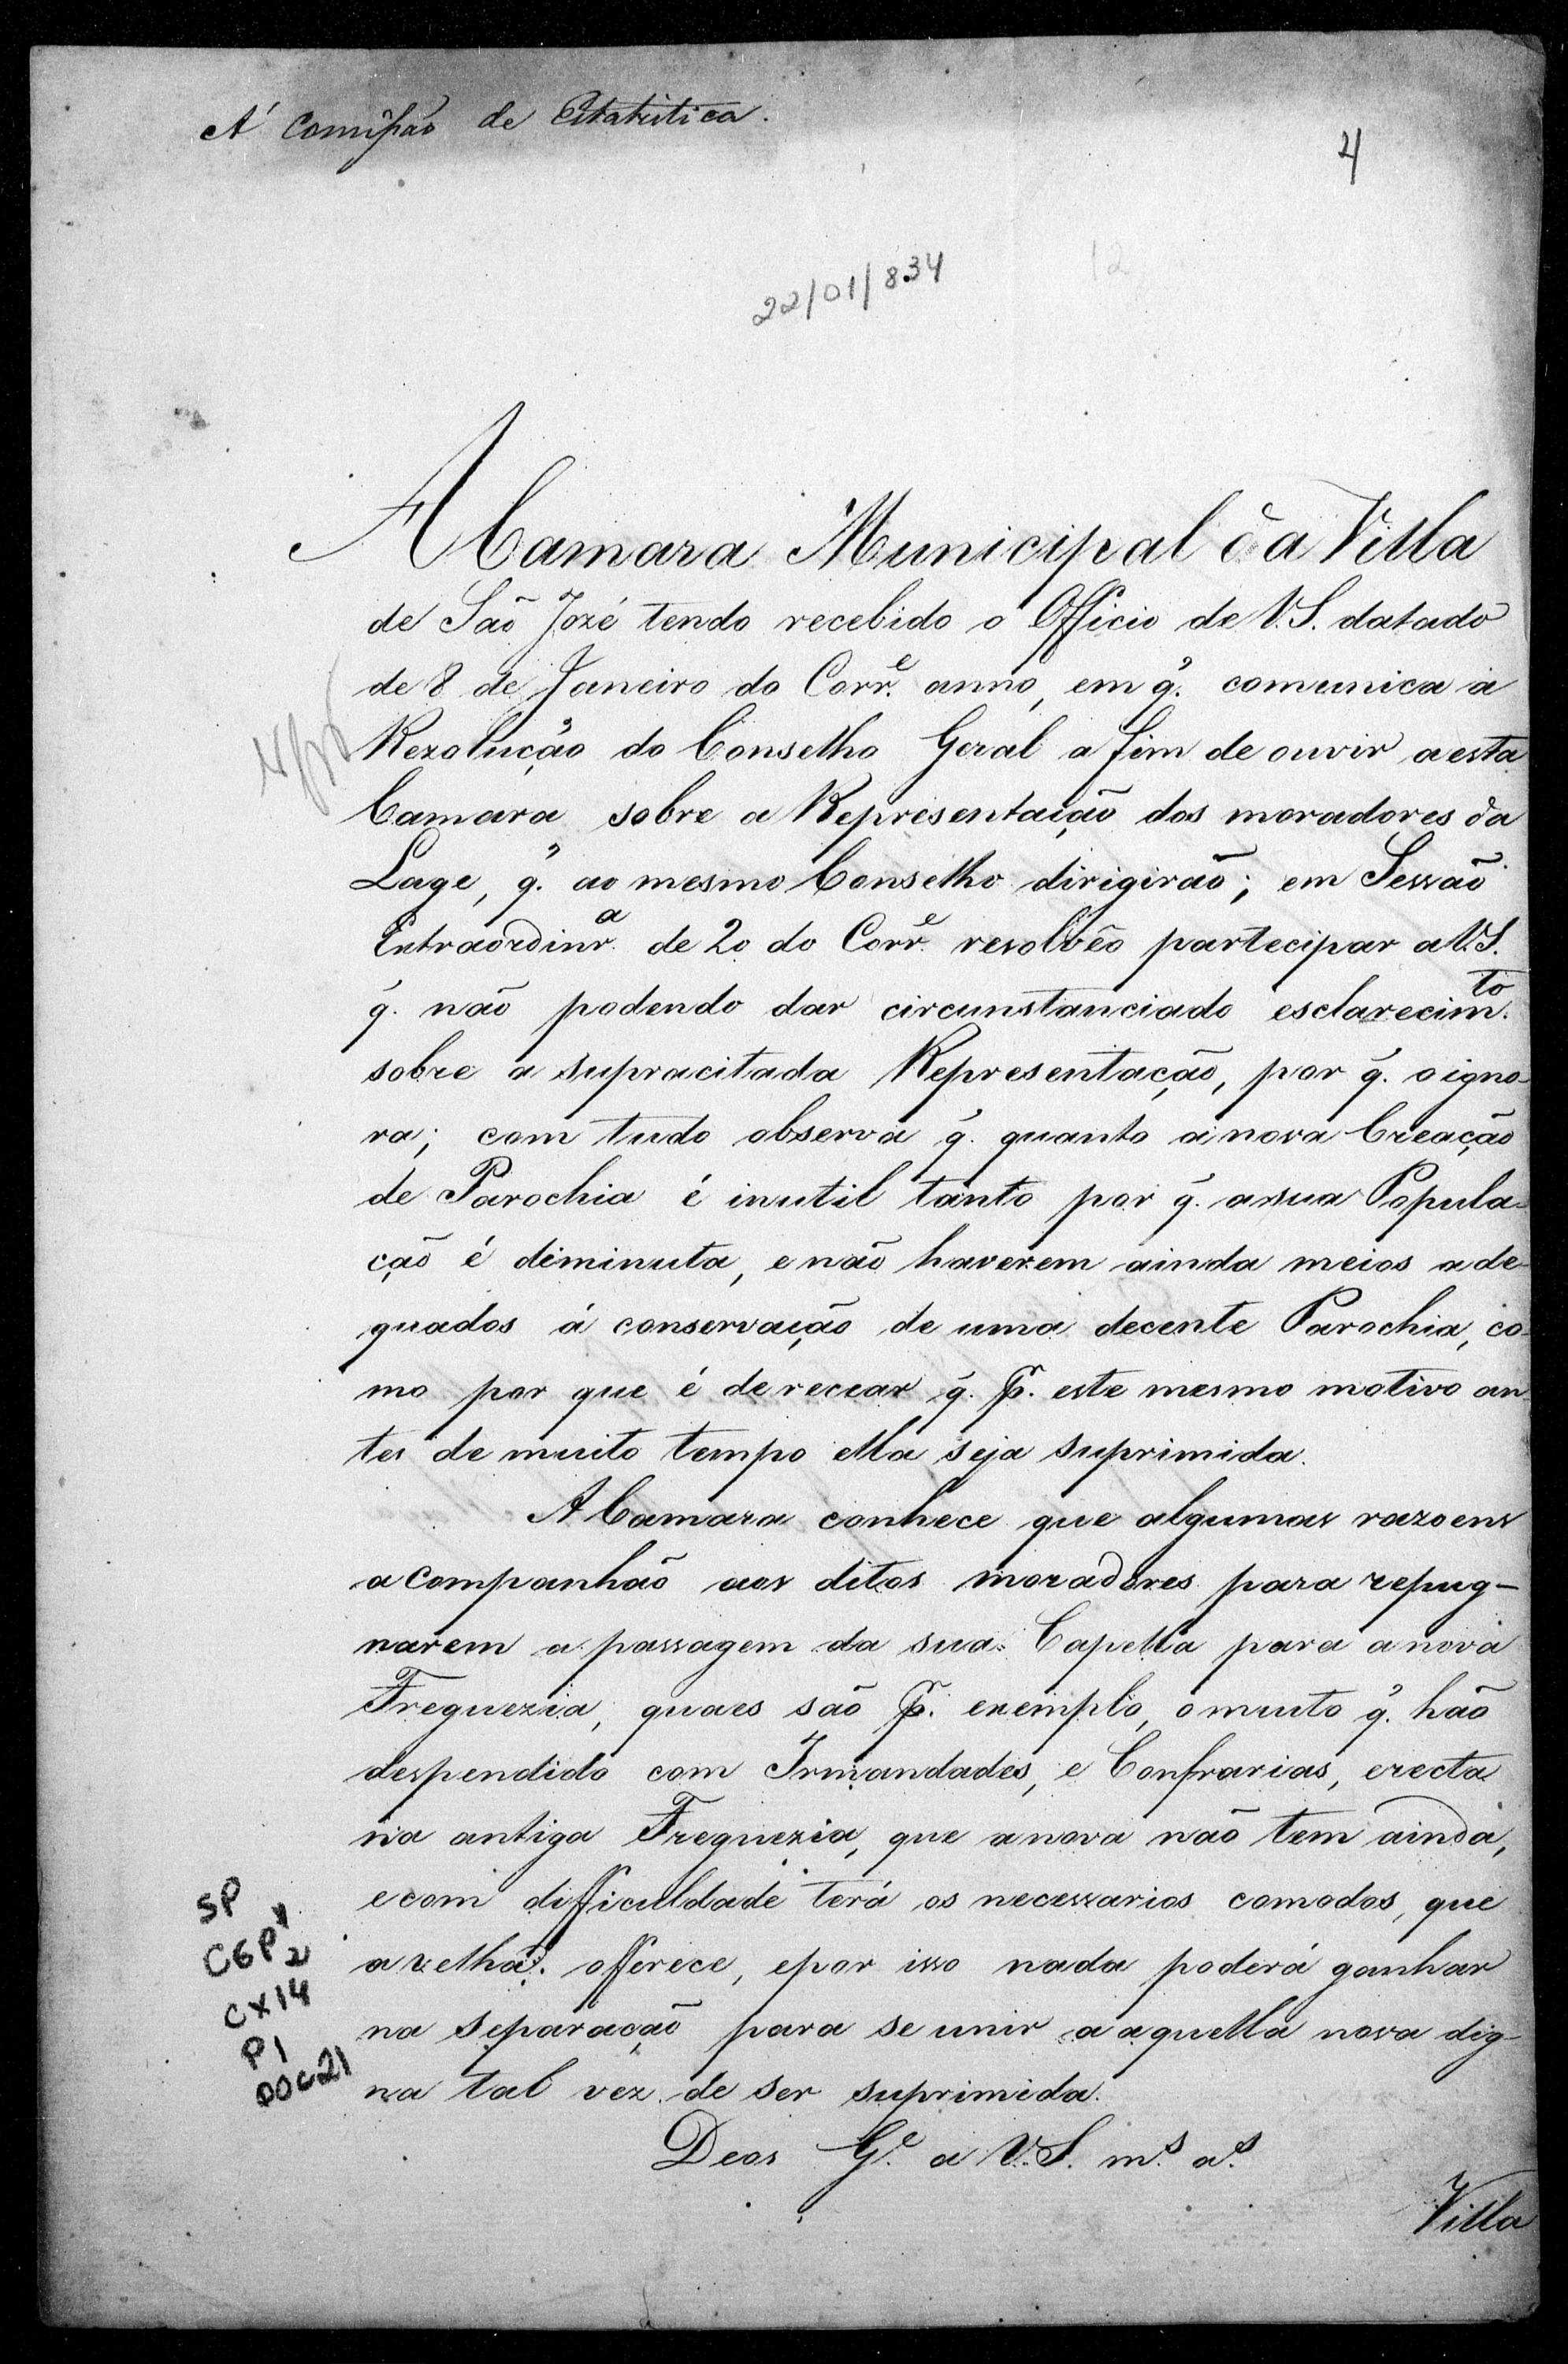 Á Comissão de Estatistica.
4
12
22/01/834
A Camara Municipal da Villa
de São Jozé tendo recebido o Officio de V.S. datado
de 8 de Janeiro do Corr.e anno, em q̃. comunica a
Rezolução do Conselho Geral a fim de ouvir a esta
Camara sobre a Representação dos moradores da
Lage, q̃. ao mesmo Conselho dirigirão; em Sessão
Extraordinr.a de 20 do Corr.e resolvêo partecipar a V.S.
q̃. não podendo dar circunstanciado esclarecim.to
sobre a supracitada Representação, por q̃. o igno-
ra; com tudo observa q̃. quanto a nova Creação
de Parochia é inutil tanto por q̃. a sua Popula-
ção é diminuta, e não haverem ainda meios ade-
quados á conservação de uma decente Parochia, co-
mo por que é de recear q̃. p.r este mesmo motivo an-
tes de muito tempo ella seja suprimida.
A Camara conhece que algumas razoens
acompanhão aos ditos moradores para repug-
narem a passagem da sua Capella para a nova
Freguezia, quaes são p.r exemplo, o muito q̃. hão
despendido com Irmandades, e Confrarias, erecta
na antiga Freguezia, que a nova não tem ainda,
e com difficuldade terá os necessarios comodos, que
a velha offerece, e por isso nada poderá ganhar
na separação para se unir a aquella nova dig-
na tal vez de ser suprimida.
Deos G.e a V.S. m.s a.s
Villa
SP
CGP1
2
CX14
P1
DOC21